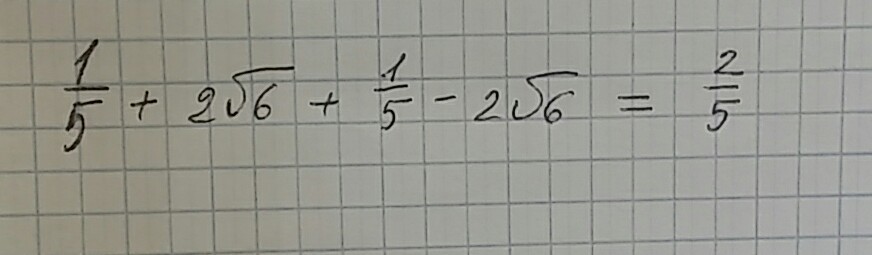 1/5 + 2√6 + 1/5 - 2√6 = 2/5